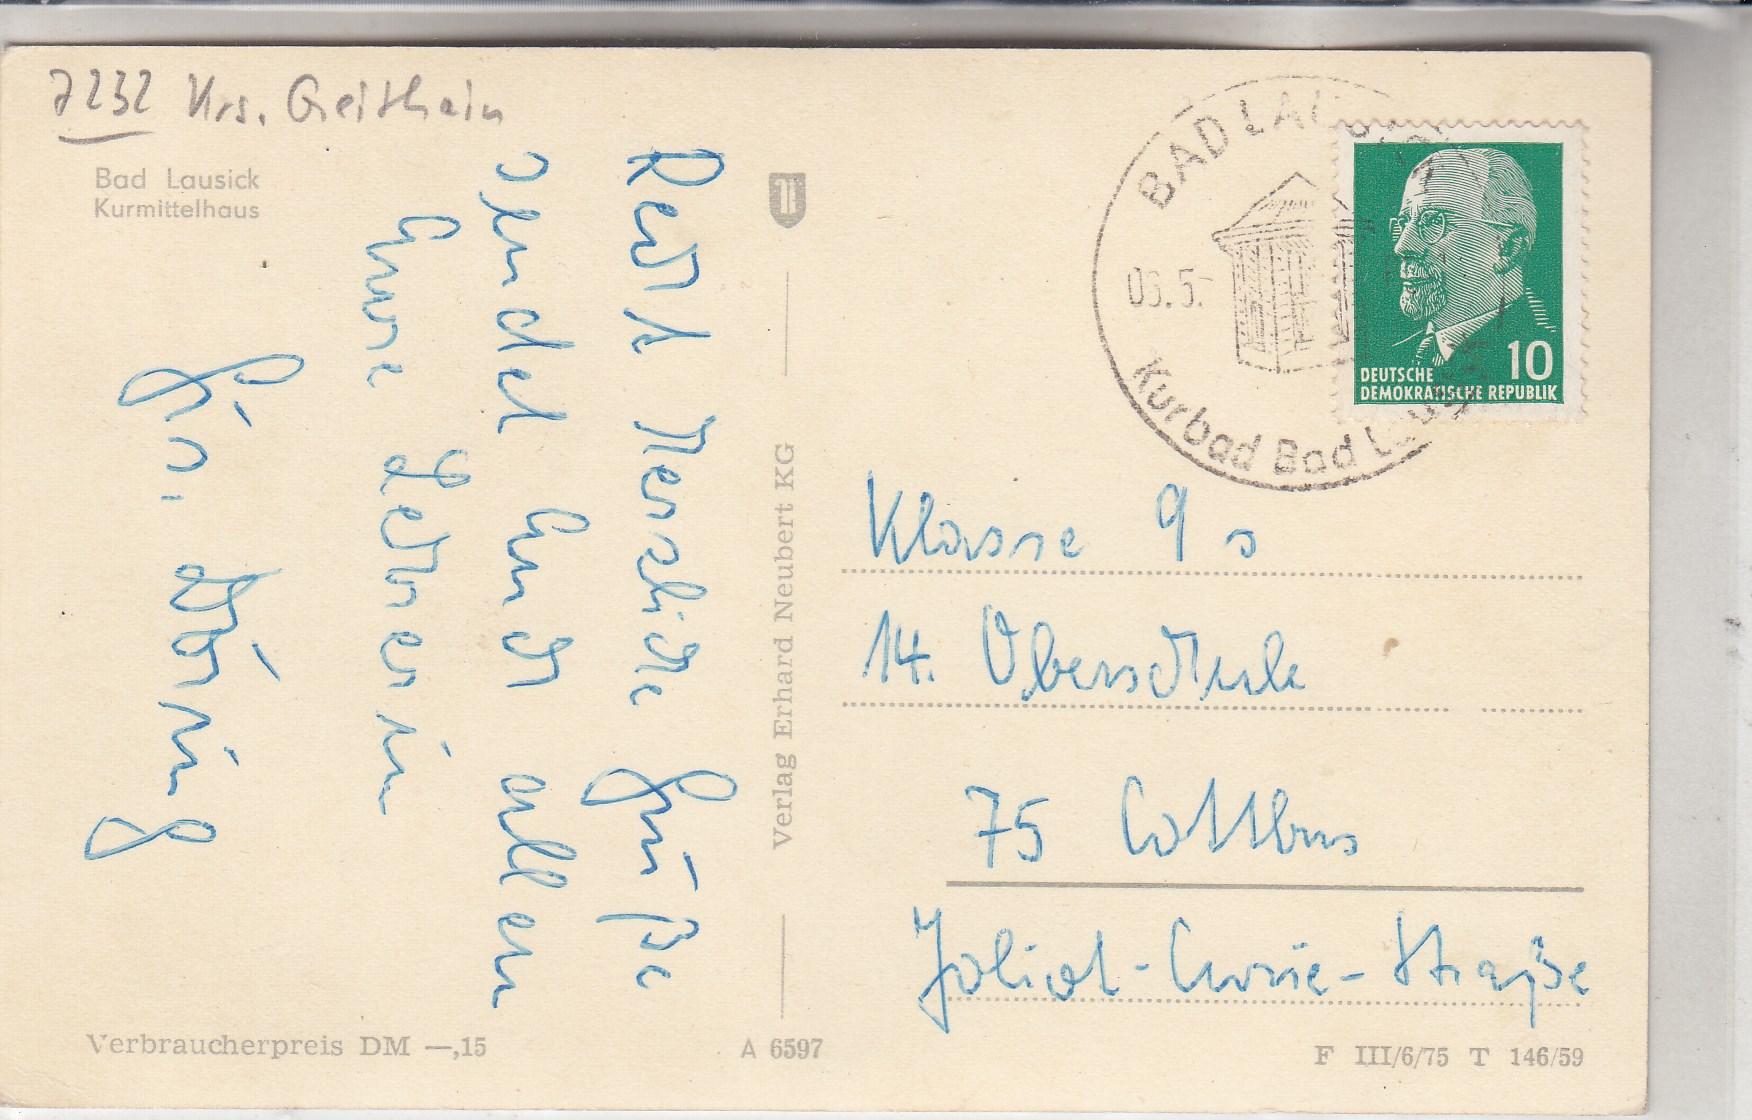 7232 Krs. Geithain
Bad Lausick
Kurmittelhaus
Recht herzliche Grüße
sendet Euch allen
Eure Lehrerin
Gr. Döring
Verlag Erhard Neubert KG
BAD LAUSICK
06.5.
Kurbad Bad Lausick
10
DEUTSCHE
DEMOKRATISCHE REPUBLIK
Klasse 9a
14. Oberschule
75 Cottbus
Joliot-Curie-Straße
Verbraucherpreis DM —,15
A 6597
F III/6/75 T 146/59